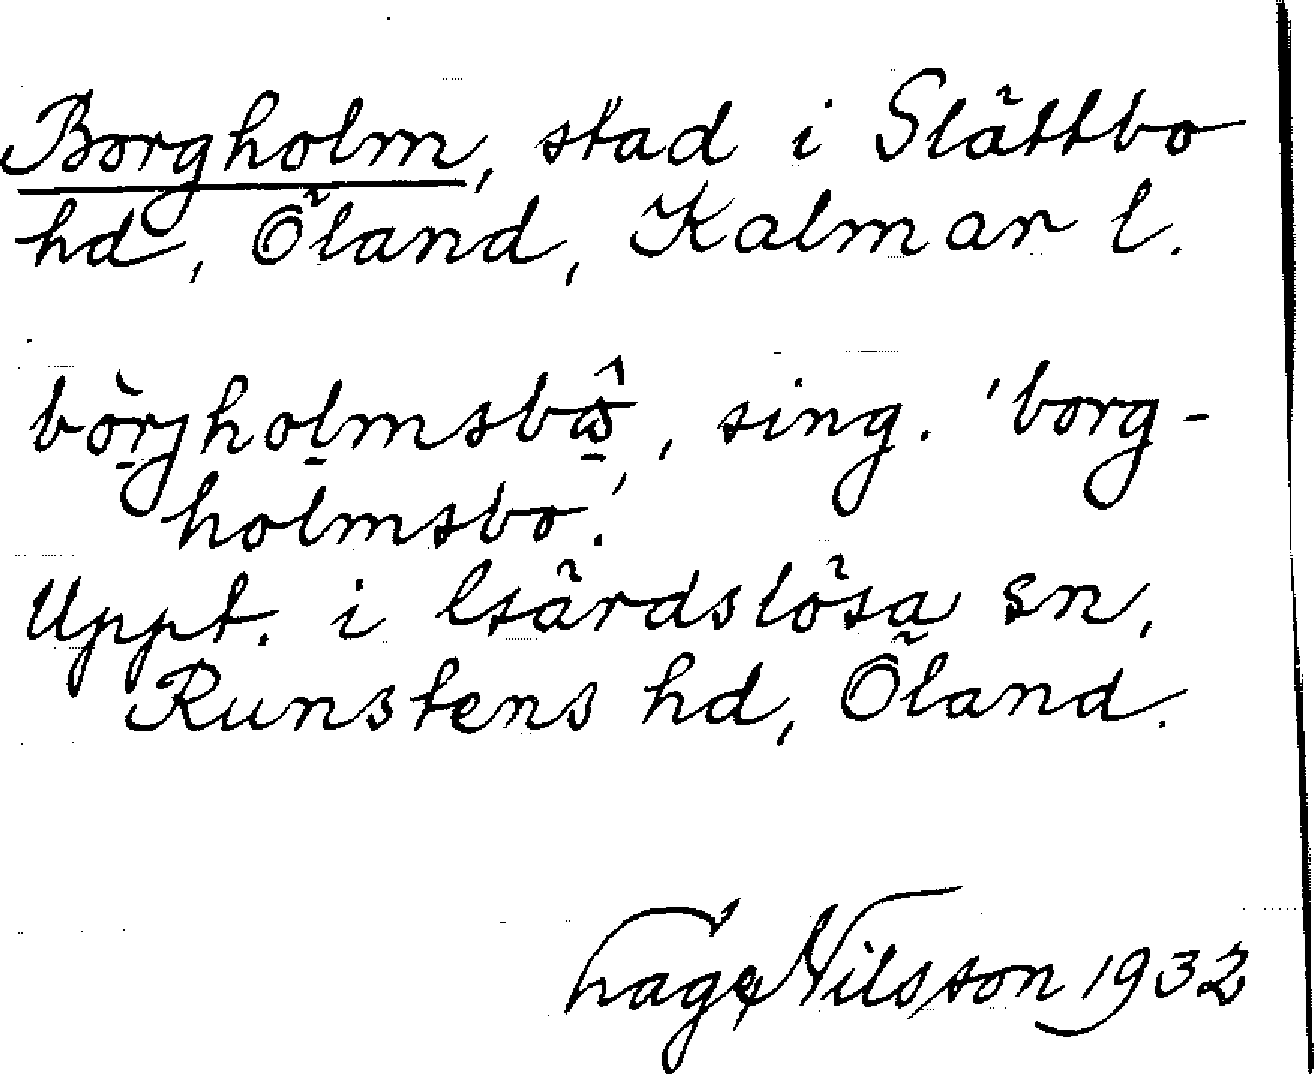 Borgholm, stad i Slättbo
hd, Öland, Kalmar l.
sing. 'borg-
holmsbo'.
Uppt. i Gärdslösa sn,
Runstens hd, Öland.
Tage Nilsson 1932